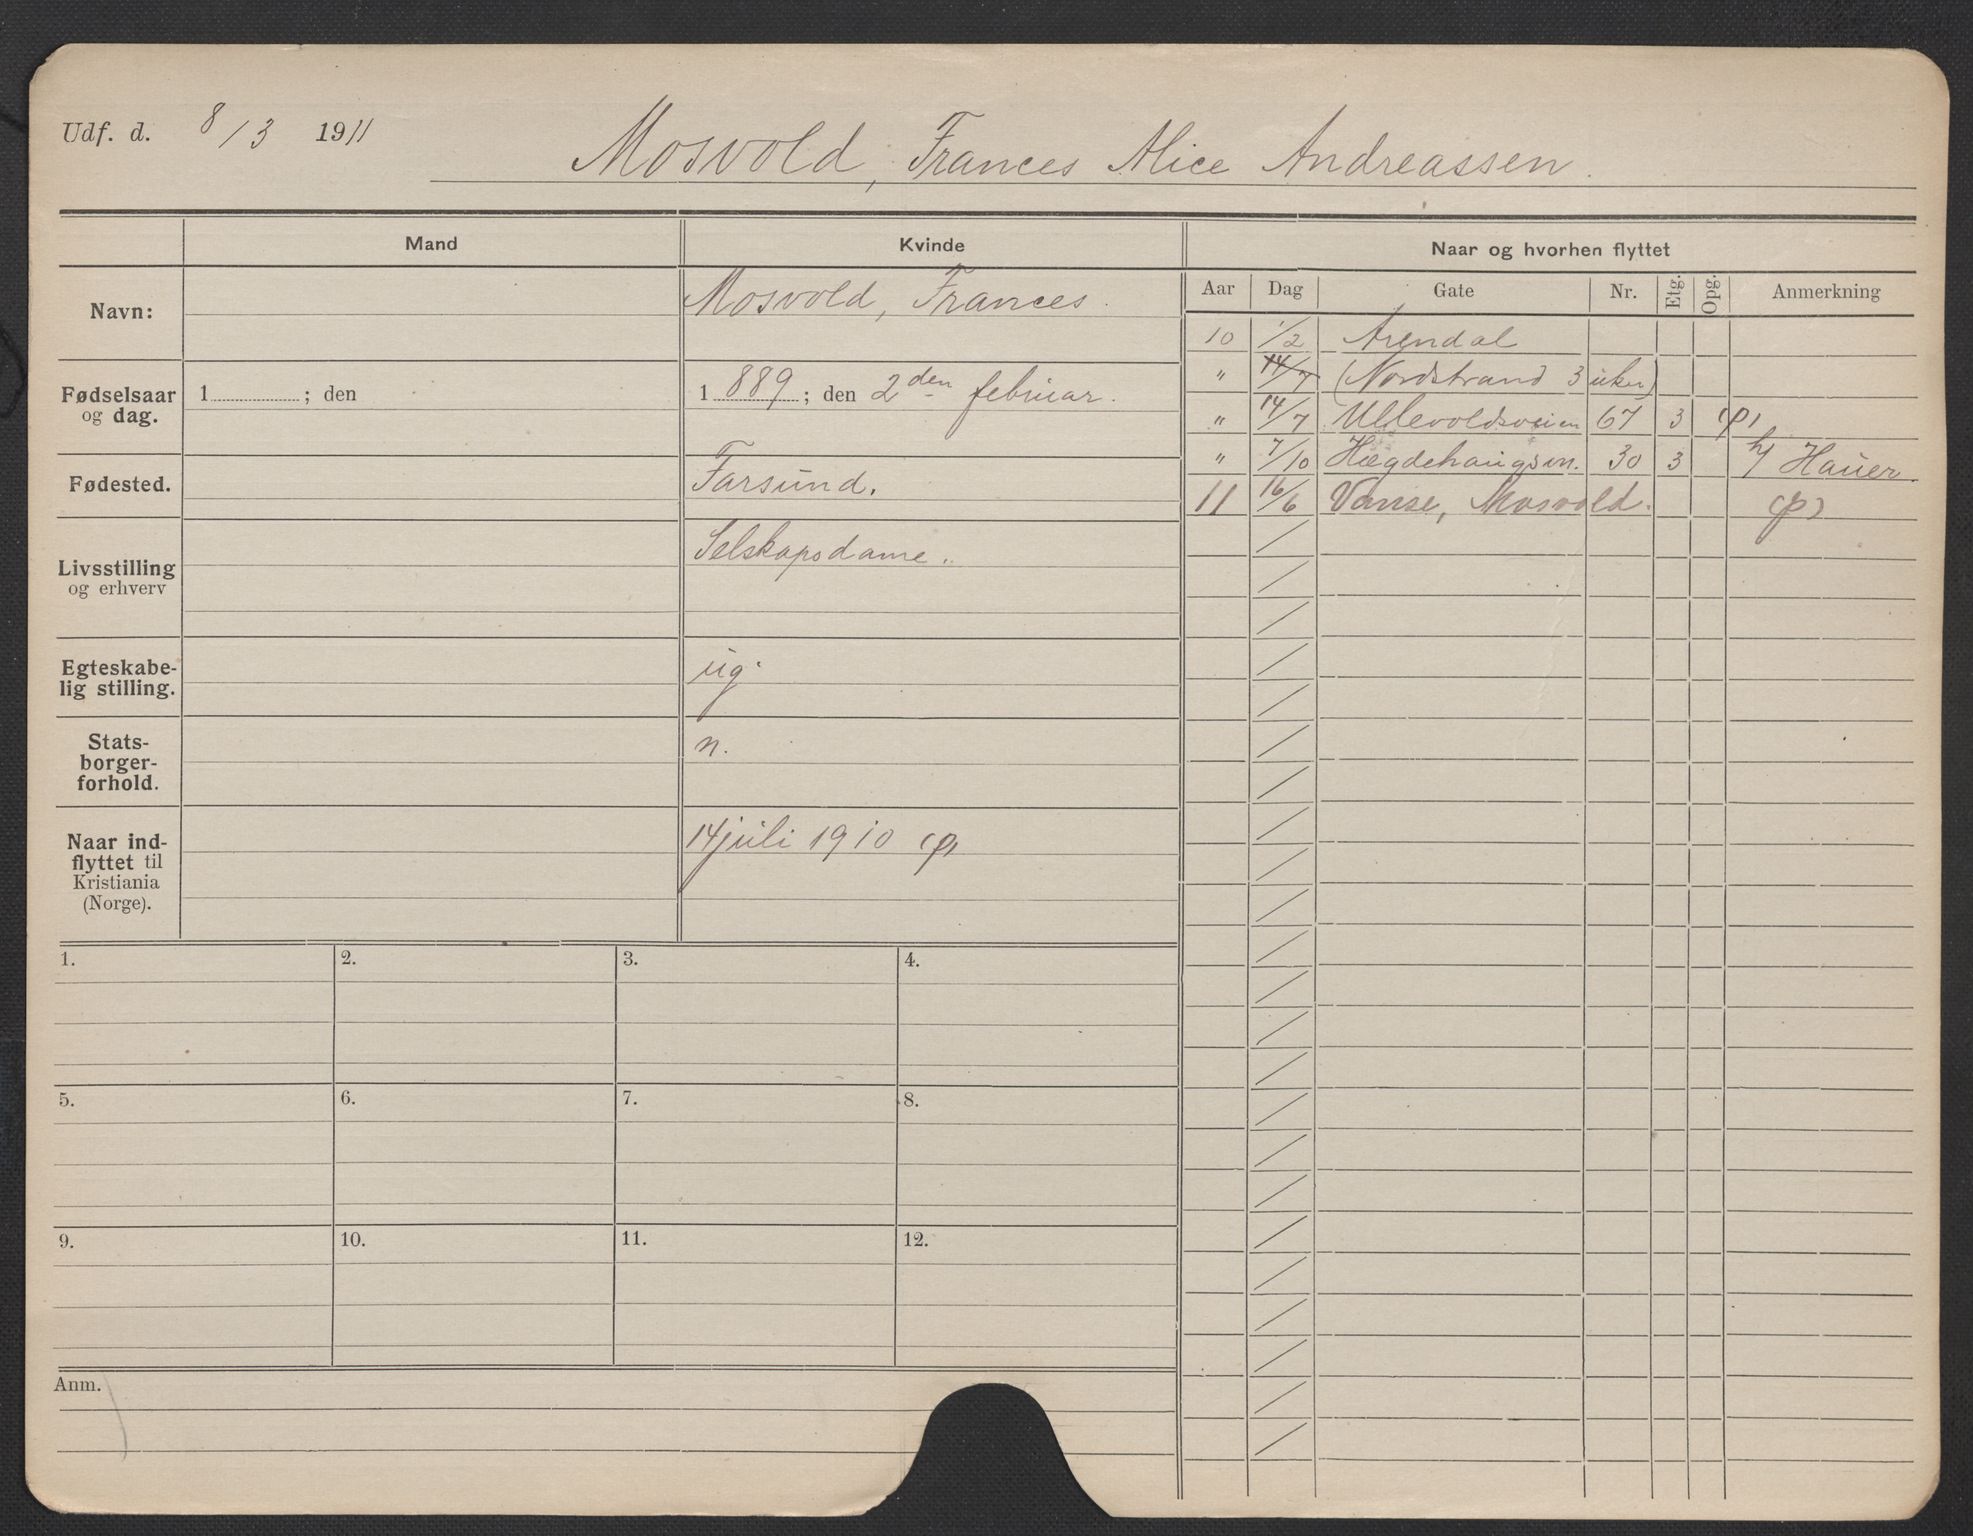 Udf. d. 8/3 1911
Mosvold, Frances Alice Andreassen.
Mand
Kvinde
Naar og hvorhen flyttet
Aar Dag Gate Nr. Etg. Opg. Anmerkning
Navn:
Mosvold, Frances.
Fødselsaar
og dag.
1 ; den
1889 ; den 2den februar.
Fødested.
Farsund.
Livsstilling
og erhverv
Selskapsdame.
Egteskabe-
lig stilling.
ug.
Stats-
borger-
forhold.
n.
Naar ind-
flyttet til
Kristiania
(Norge).
14 juli 1910
10 1/2 Arendal
" 14/7 (Nordstrand 3 uker)
" 14/7 Ullevoldsveien 67 3
" 7/10 Hægdehaugsvn. 30 3 h/ Hauer.
11 16/6 Vanse, Mosvold.
1. 2. 3. 4.
5. 6. 7. 8.
9. 10. 11. 12.
Anm.